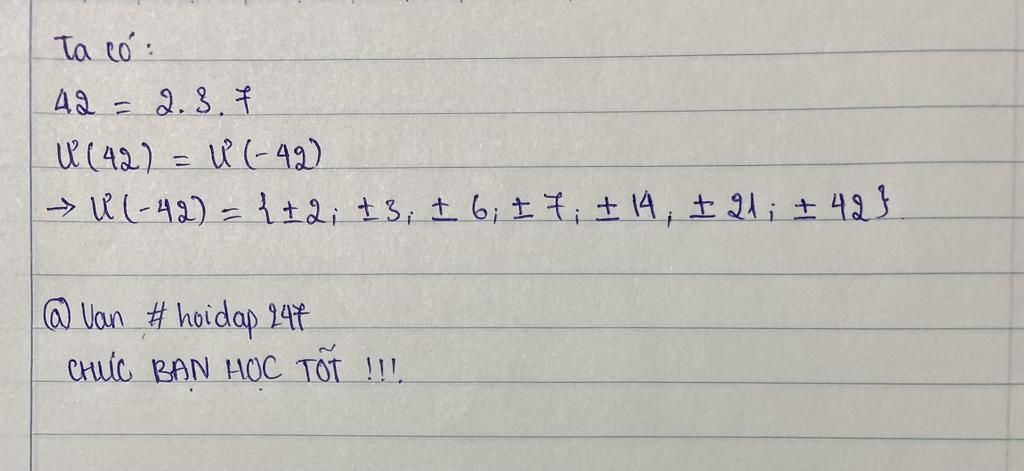 Ta có:
42 = 2.3.7
Ư(42) = Ư(-42)
→ Ư(-42) = {±2; ±3; ±6; ±7; ±14, ±21; ±42}.
@Van #hoidap247
CHÚC BẠN HỌC TỐT !!!